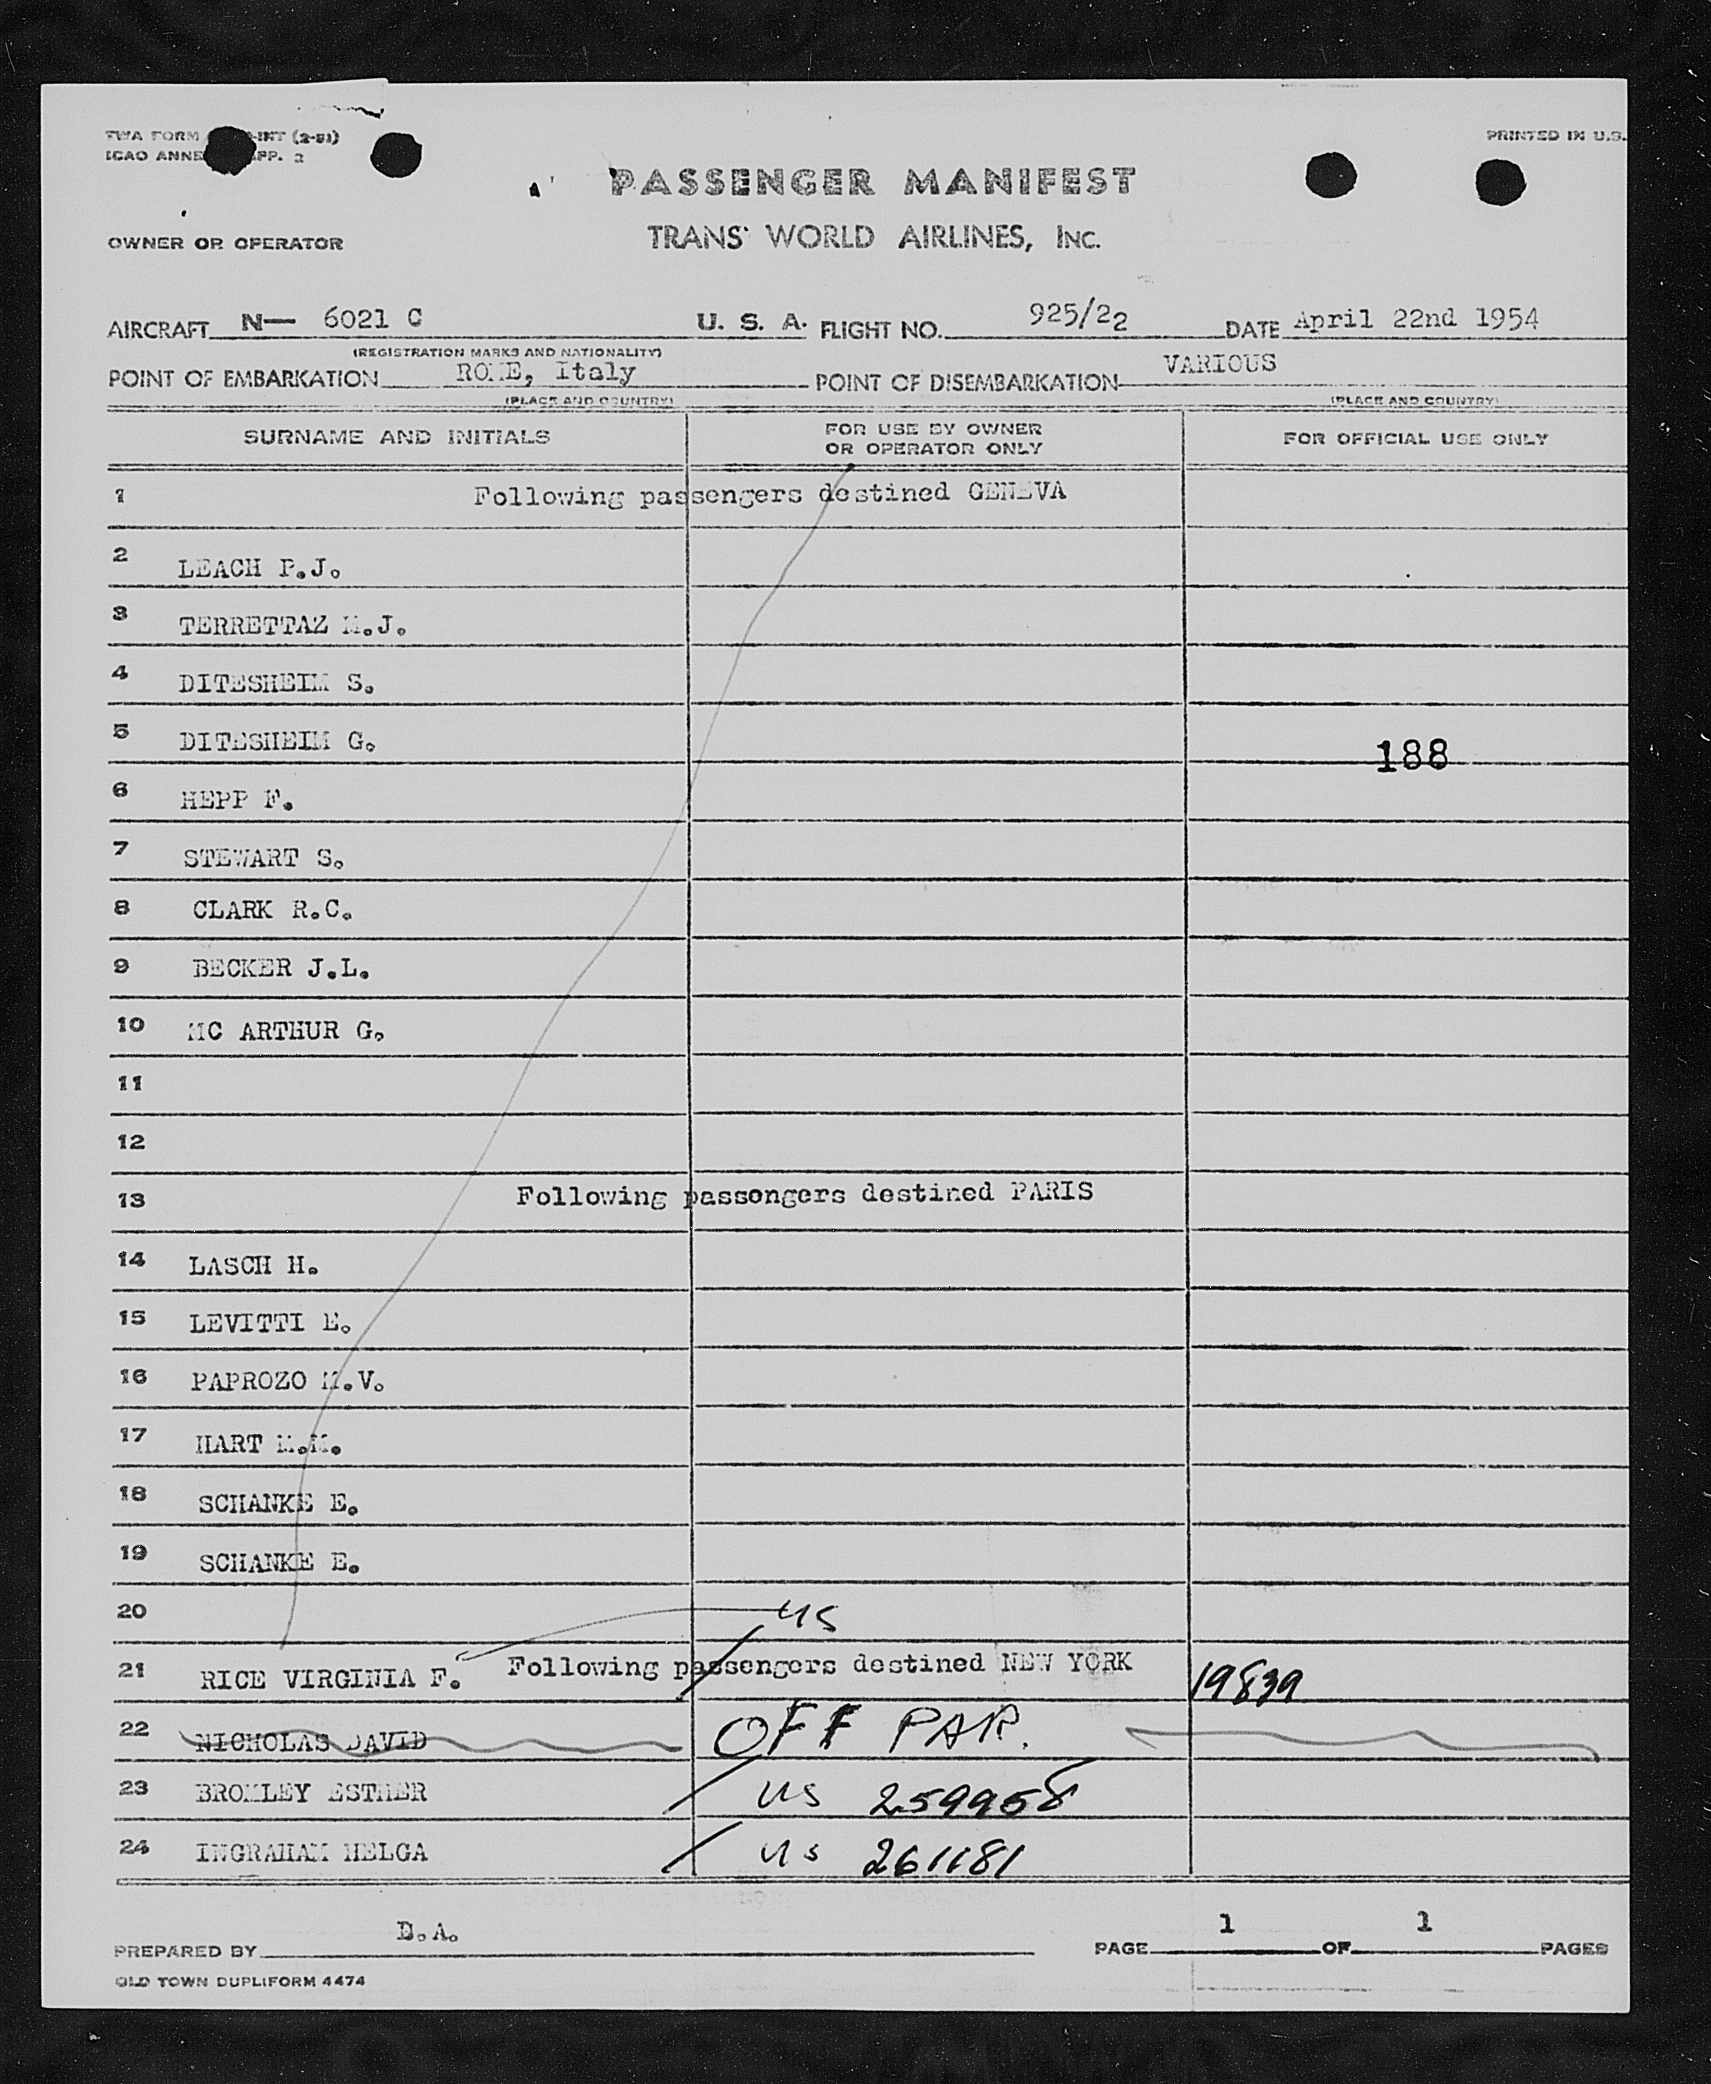 TWA FORM -INT (2-51)
ICAO ANNE APP. 2
PRINTED IN U.S.
PASSENGER MANIFEST
OWNER OR OPERATOR
TRANS WORLD AIRLINES, INC.
AIRCRAFT N— 6021 C U. S. A. FLIGHT NO. 925/22 DATE April 22nd 1954
(REGISTRATION MARKS AND NATIONALITY)
POINT OF EMBARKATION ROME, Italy POINT OF DISEMBARKATION VARIOUS
(PLACE AND COUNTRY) (PLACE AND COUNTRY)
SURNAME AND INITIALS FOR USE BY OWNER OR OPERATOR ONLY FOR OFFICIAL USE ONLY
1 Following passengers destined GENEVA
2 LEACH P.J.
3 TERRETTAZ M.J.
4 DITESHEIM S.
5 DITESHEIM G. 188
6 HEPP F.
7 STEWART S.
8 CLARK R.C.
9 BECKER J.L.
10 MC ARTHUR G.
11
12
13 Following passengers destined PARIS
14 LASCH H.
15 LEVITTI E.
16 PAPROZO M.V.
17 HART M.M.
18 SCHANKE E.
19 SCHANKE E.
20 US
21 RICE VIRGINIA F. Following passengers destined NEW YORK 19839
22 NICHOLAS DAVID OFF PAR.
23 BROMLEY ESTHER US 259958
24 INGRAHAM HELGA US 261181
PREPARED BY D.A. PAGE 1 OF 1 PAGES
OLD TOWN DUPLIFORM 4474